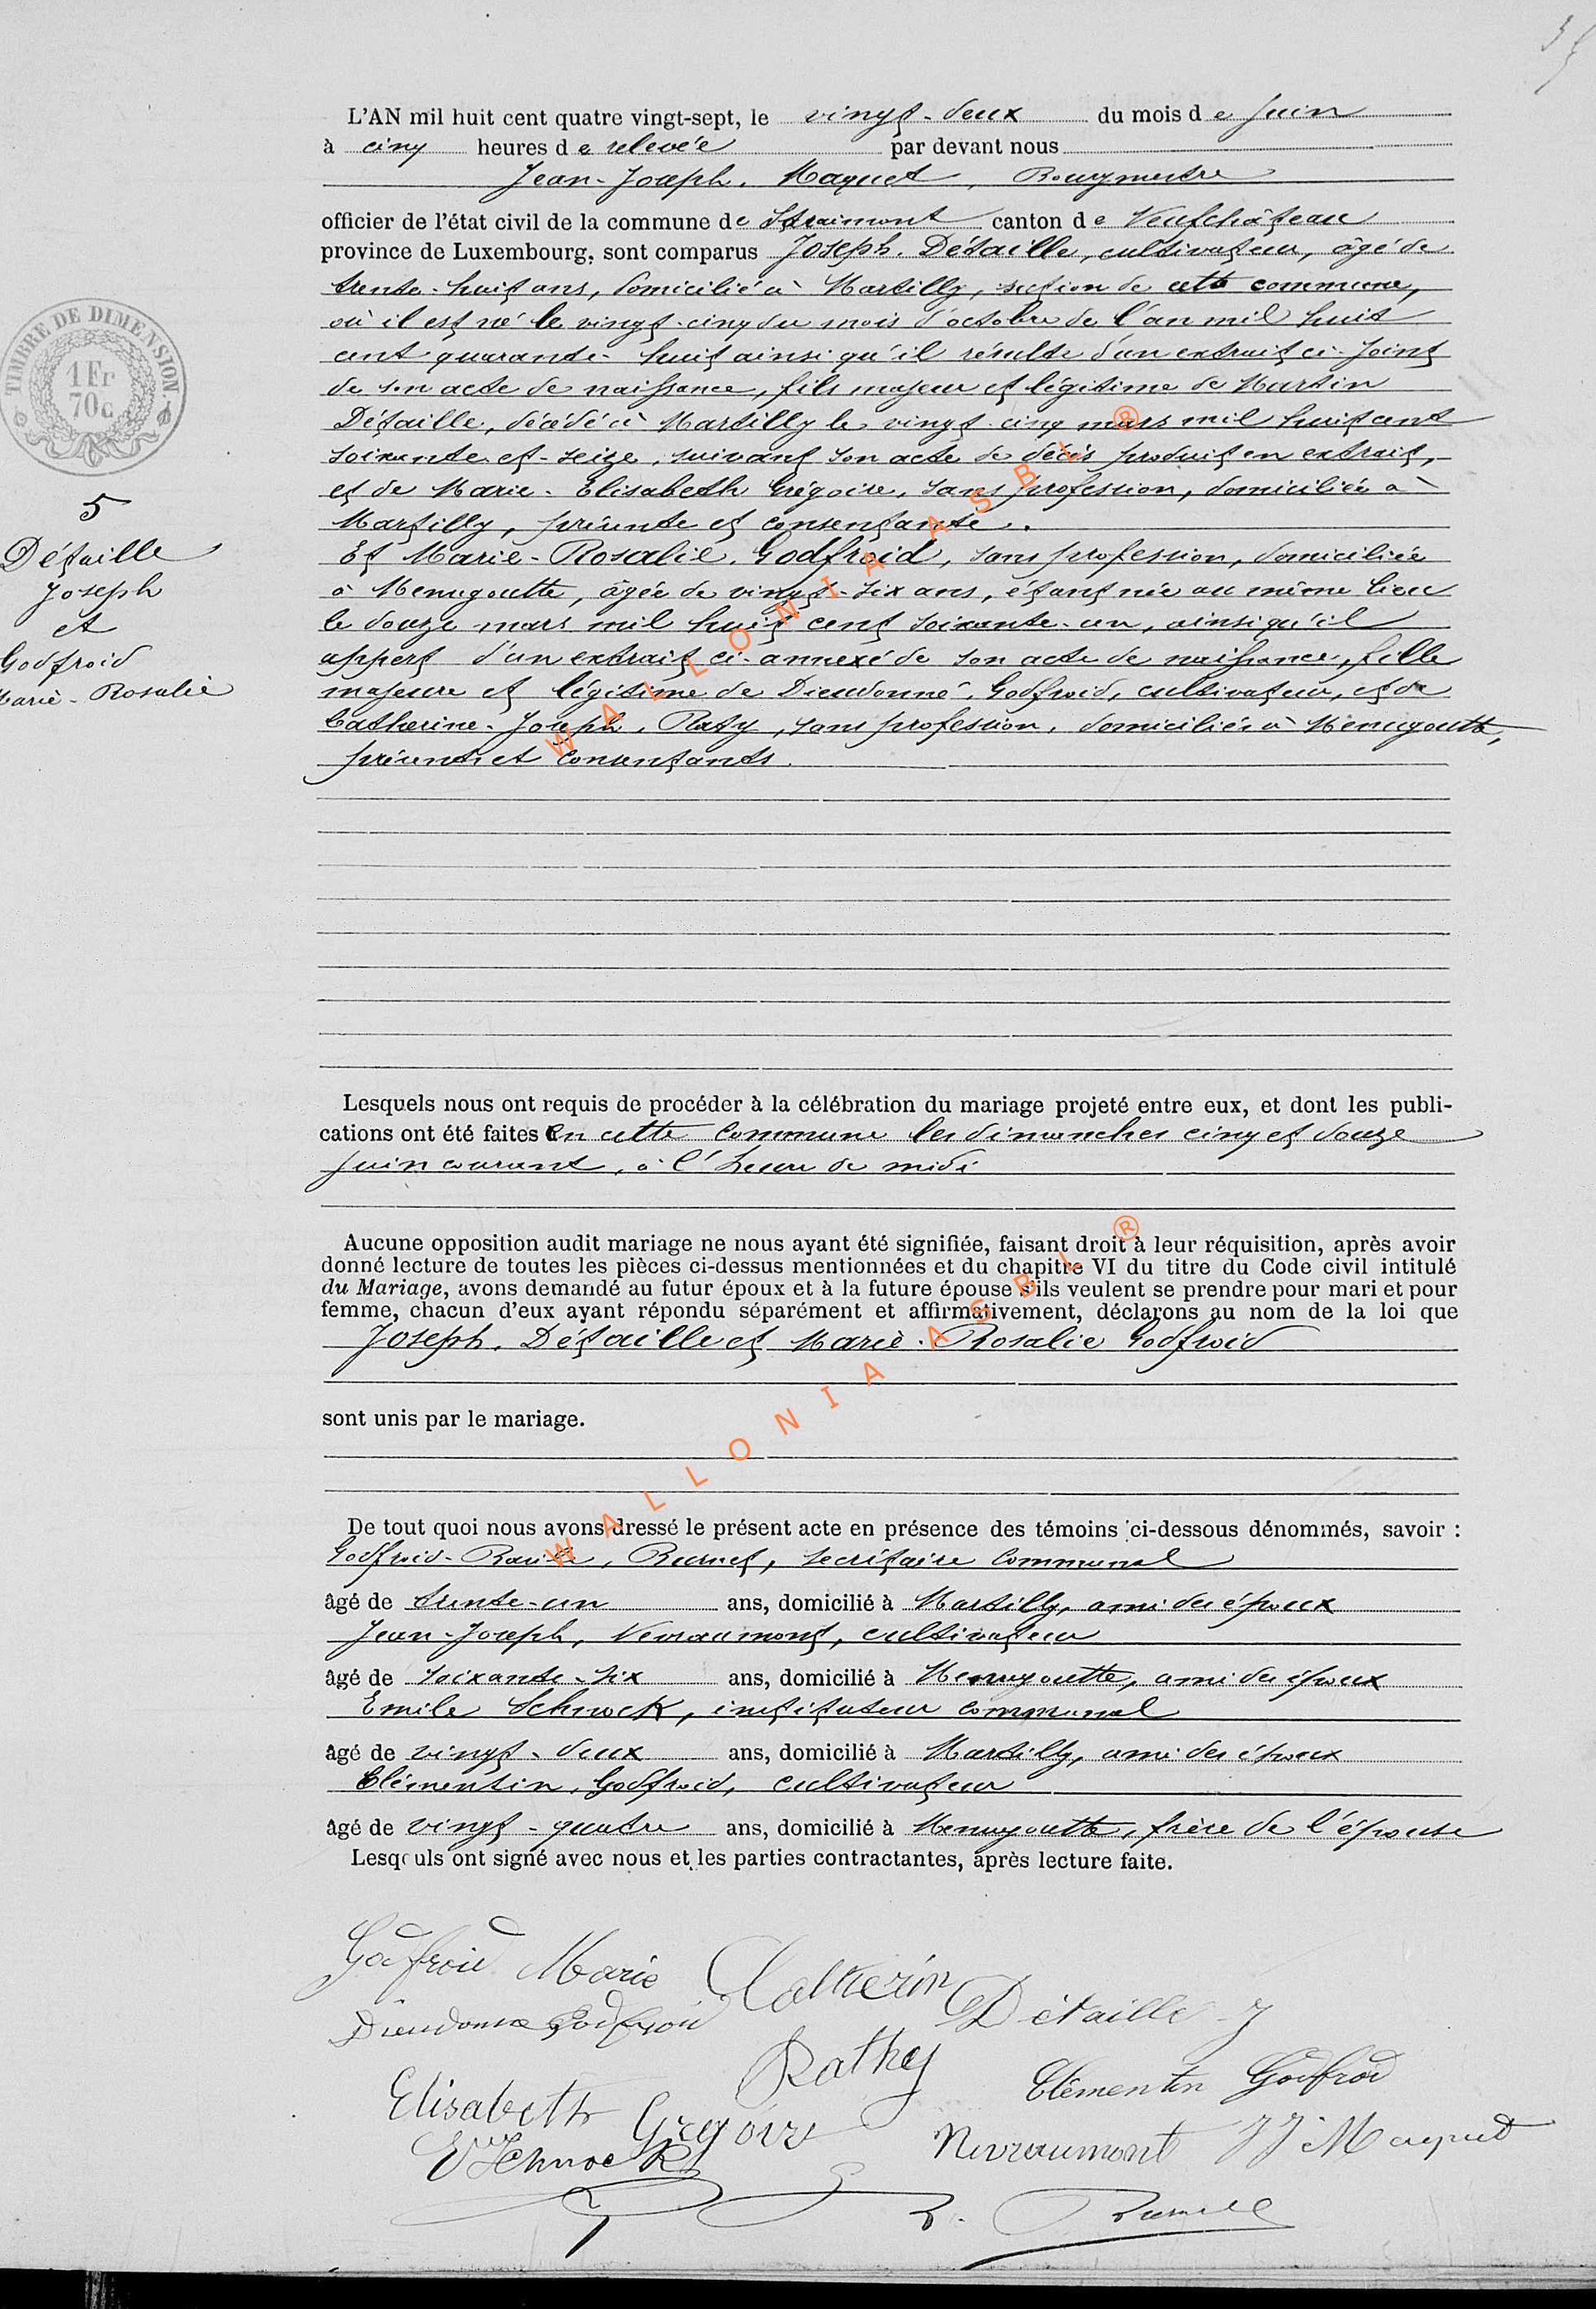 35
L'AN mil huit cent quatre vingt-sept, le vingt-deux du mois de Juin
à cinq heures de relevée par devant nous
Jean-Joseph. Maquet, Bourgmestre
officier de l'état civil de la commune de Straimont canton de Neufchâteau
province de Luxembourg, sont comparus Joseph. Détaille, cultivateur, âgé de
trente-huit ans, domicilié à Martilly, section de cette commune,
où il est né le vingt-cinq du mois d'octobre de l'an mil huit
cent quarante-huit ainsi qu'il résulte d'un extrait ci-joint
de son acte de naissance, fils majeur et légitime de Martin
Détaille, décédé à Martilly le vingt-cinq mars mil huit cent
soixante-et-seize, suivant son acte de décès produit en extrait,
et de Marie-Elisabeth Grégoire, sans profession, domiciliée à
Martilly, présente et consentante.
Et Marie-Rosalie. Godfroid, sans profession, domiciliée
à Menugoutte, âgée de vingt-six ans, étant née au même lieu
le douze mars mil huit cent soixante-un, ainsi qu'il
appert d'un extrait ci-annexé de son acte de naissance, fille
majeure et légitime de Dieudonné. Godfroid, cultivateur, et de
Catherine-Joseph. Raty, sans profession, domiciliés à Menugoutte,
présents et consentants.
TIMBRE DE DIMENSION
1 Fr
70c
5
Détaille
Joseph
et
Godfroid
Marie-Rosalie
WALLONIA ASBL ®
Lesquels nous ont requis de procéder à la célébration du mariage projeté entre eux, et dont les publi-
cations ont été faites en cette commune les dimanches cinq et douze
juin courant, à l'heure de midi
Aucune opposition audit mariage ne nous ayant été signifiée, faisant droit à leur réquisition, après avoir
donné lecture de toutes les pièces ci-dessus mentionnées et du chapitre VI du titre du Code civil intitulé
du Mariage, avons demandé au futur époux et à la future épouse s'ils veulent se prendre pour mari et pour
femme, chacun d'eux ayant répondu séparément et affirmativement, déclarons au nom de la loi que
Joseph. Détaille et Marie-Rosalie Godfroid
sont unis par le mariage.
WALLONIA ASBL ®
De tout quoi nous avons dressé le présent acte en présence des témoins ci-dessous dénommés, savoir :
Godfroid- , secrétaire communal
âgé de trente-un ans, domicilié à Martilly, ami des époux
Jean-Joseph, Nevraumont, cultivateur
âgé de soixante-six ans, domicilié à Menugoutte, ami des époux
Emile Schnock, instituteur communal
âgé de vingt-deux ans, domicilié à Martilly, ami des époux
Clémentin, Godfroid, cultivateur
âgé de vingt-quatre ans, domicilié à Menugoutte, frère de l'épouse
Lesquels ont signé avec nous et les parties contractantes, après lecture faite.
Godfroid Marie Catherin Détaille J
Dieudonné Godfroid
Rathy
Elisabeth Grégoire Clémentin Godfroid
Em Schnock Nevraumont JJ Maquet